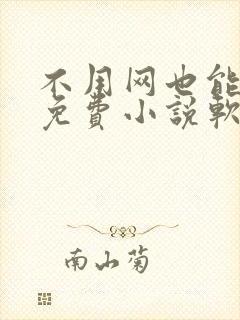 不用网也能
免費小說軟
南山菊